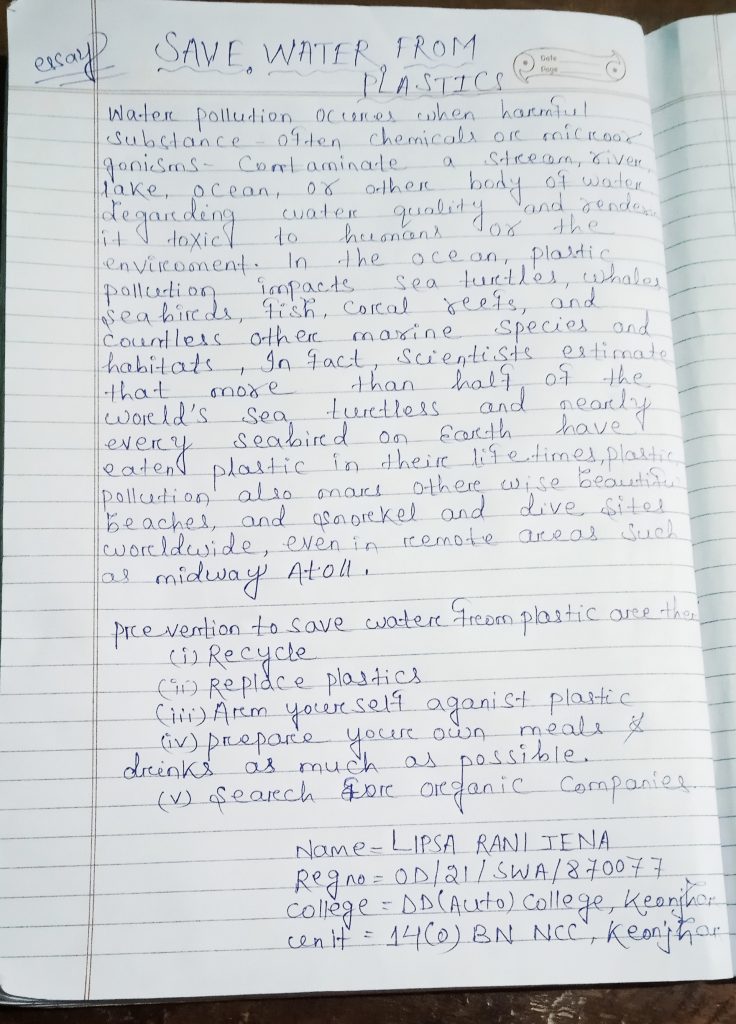 essay
SAVE WATER FROM
PLASTICS
Date
Page
Water pollution occures when harmful
substance - often chemicals or microor
ganisms - Contaminate a stream, river,
lake, ocean, or other body of water
degarding water quality and renders
it toxic to humans or the
environment. In the ocean, plastic
pollution impacts sea turtles, whales
seabirds, fish, coral reefs, and
countless other marine species and
habitats, In fact, scientists estimate
that more than half of the
world's sea turtless and nearly
every seabird on Earth have
eaten plastic in their life times, plastic
pollution also mars other wise beautiful
beaches, and snorekel and dive sites
worldwide, even in remote areas such
as midway Atoll.
prevention to save water from plastic are
(i) Recycle
(ii) Replace plastics
(iii) Arm yourself aganist plastic
(iv) prepare your own meals &
drinks as much as possible.
(v) Search for organic Companies
Name = LIPSA RANI JENA
Reg no = OD/21/SWA/870077
College = DD(Auto) College, Keonjhar
unit = 14(O) BN NCC, Keonjhar